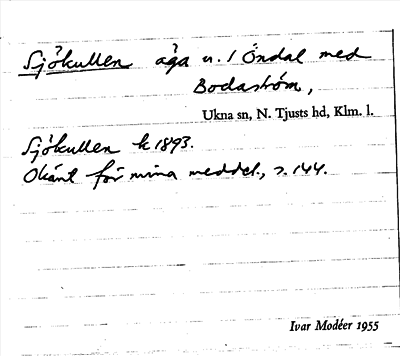 Sjökullen äga u. / Öndal med
Bodaström,
Ukna sn, N. Tjusts hd, Klm. l.
Sjökullen k 1893.
Okänt för mina meddel., s. 144.
Ivar Modéer 1955